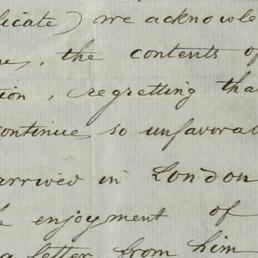 licate) we acknowle
, the contents of
tion, regretting tha
continue so unfavorab
arrived in London
enjoyment of
a letter from him